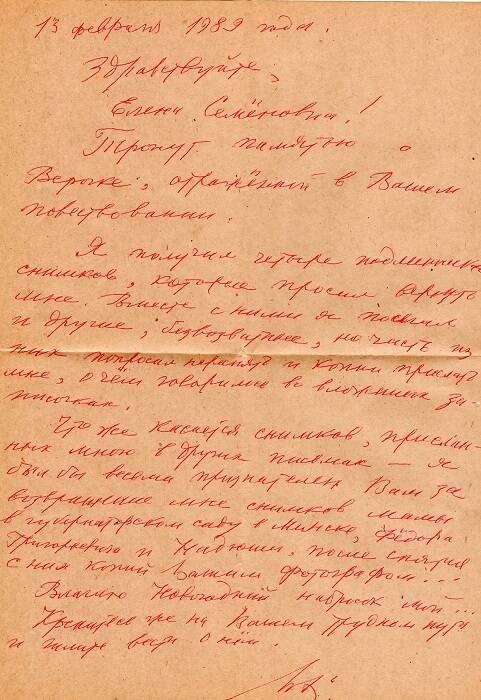 13 февраля 1989 года.
Здравствуйте,
Елена Семёновна!
Тронут памятью о
Верочке, отражённой в Вашем
повествовании.
Я получил четыре подлинника
снимков, которые просил вернуть
мне. Вместе с ними я послал
и другие, безвозвратные, но часть из
них попросил переснять и копии прислать
мне, о чём говорилось во вложенных за-
писочках.
Что же касается снимков, прислан-
ных мною в других письмах — я
был бы весьма признателен Вам за
возвращение мне снимков мамы
в губернаторском саду в Минске, Фёдора
Григорьевого и Надюши, после снятия
с них копий Вашим фотографом...
Влагаю Новогодний набросок мой...
Крепитесь же на Вашем трудном пути
и